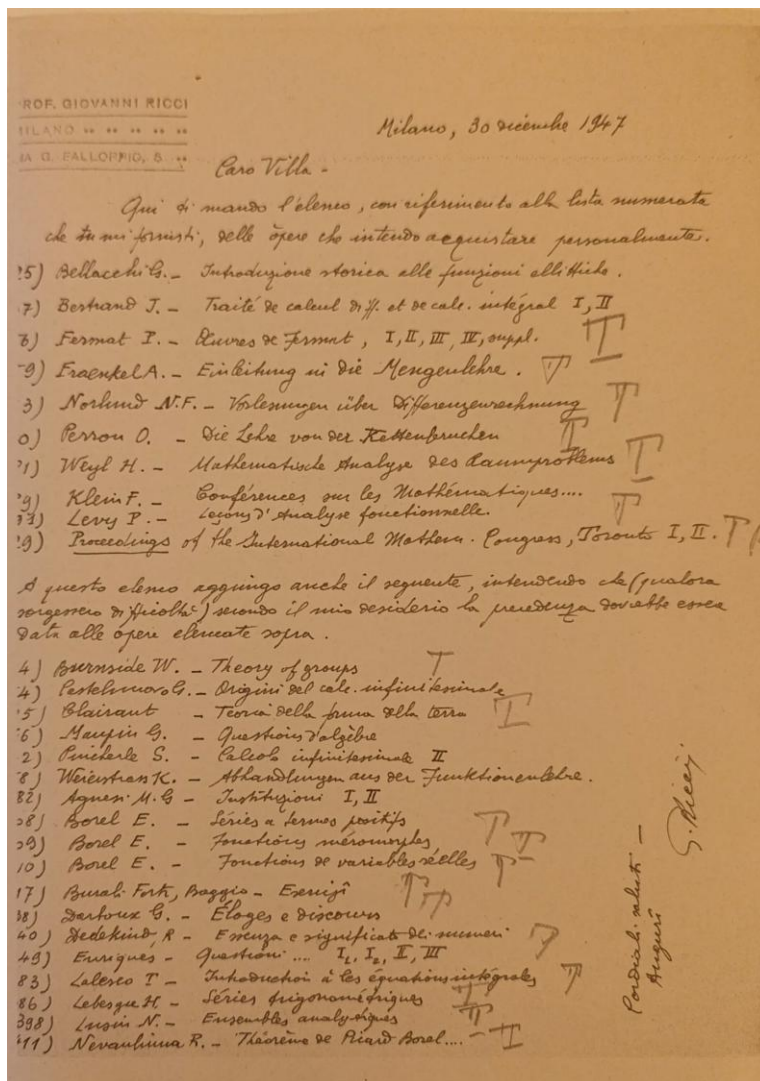 ROF. GIOVANNI RICCI
MILANO
IA G. FALLOPPIO, 8
Milano, 30 dicembre 1947
Caro Villa -
Qui ti mando l'elenco, con riferimento alla lista numerata
che tu mi fornisti, delle opere che intendo acquistare personalmente.
25) Bellacchi G. - Introduzione storica alle funzioni ellittiche.
7) Bertrand J. - Traité de calcul diff. et de calc. intégral I, II
6) Fermat P. - Œuvres de Fermat, I, II, III, IV, suppl. T
9) Fraenkel A. - Einleitung in die Mengenlehre. T
3) Norlund N.F. - Vorlesungen über Differenzenrechnung T
0) Perron O. - Die Lehre von der Kettenbruchen T
71) Weyl H. - Mathematische Analyse des Raumproblems T
9) Klein F. - Conférences sur les Mathématiques....
33) Levy P. - Leçons d'Analyse fonctionnelle. T
9) Proceedings of the International Mathem. Congress, Toronto I, II. T
A questo elenco aggiungo anche il seguente, intendendo che (qualora
sorgessero difficoltà) secondo il mio desiderio la precedenza dovrebbe essere
data alle opere elencate sopra.
4) Burnside W. - Theory of groups T
4) Castelnuovo G. - Origini del calc. infinitesimale
5) Clairaut - Teoria della forma della terra T
6) Maupin G. - Questions d'algèbre
2) Pincherle S. - Calcolo infinitesimale II
8) Weierstrass K. - Abhandlungen aus der Funktionenlehre.
82) Agnesi M.G - Instituzioni I, II
28) Borel E. - Séries a termes positifs T
29) Borel E. - Fonctions méromorphes T
10) Borel E. - Fonctions de variables réelles T
17) Burali Forti, Boggio - Esercizî T
38) Darboux G. - Éloges e discours
40) Dedekind, R - Essenza e significato dei numeri T
49) Enriques - Questioni .... I, I, II, III
83) Lalesco T - Introduction à les équations intégrales T
86) Lebesgue H - Séries trigonométriques T
398) Lusin N. - Ensembles analytiques T
411) Nevanlinna R. - Théorème de Picard Borel.... T
Cordiali saluti -
Auguri
G. Ricci